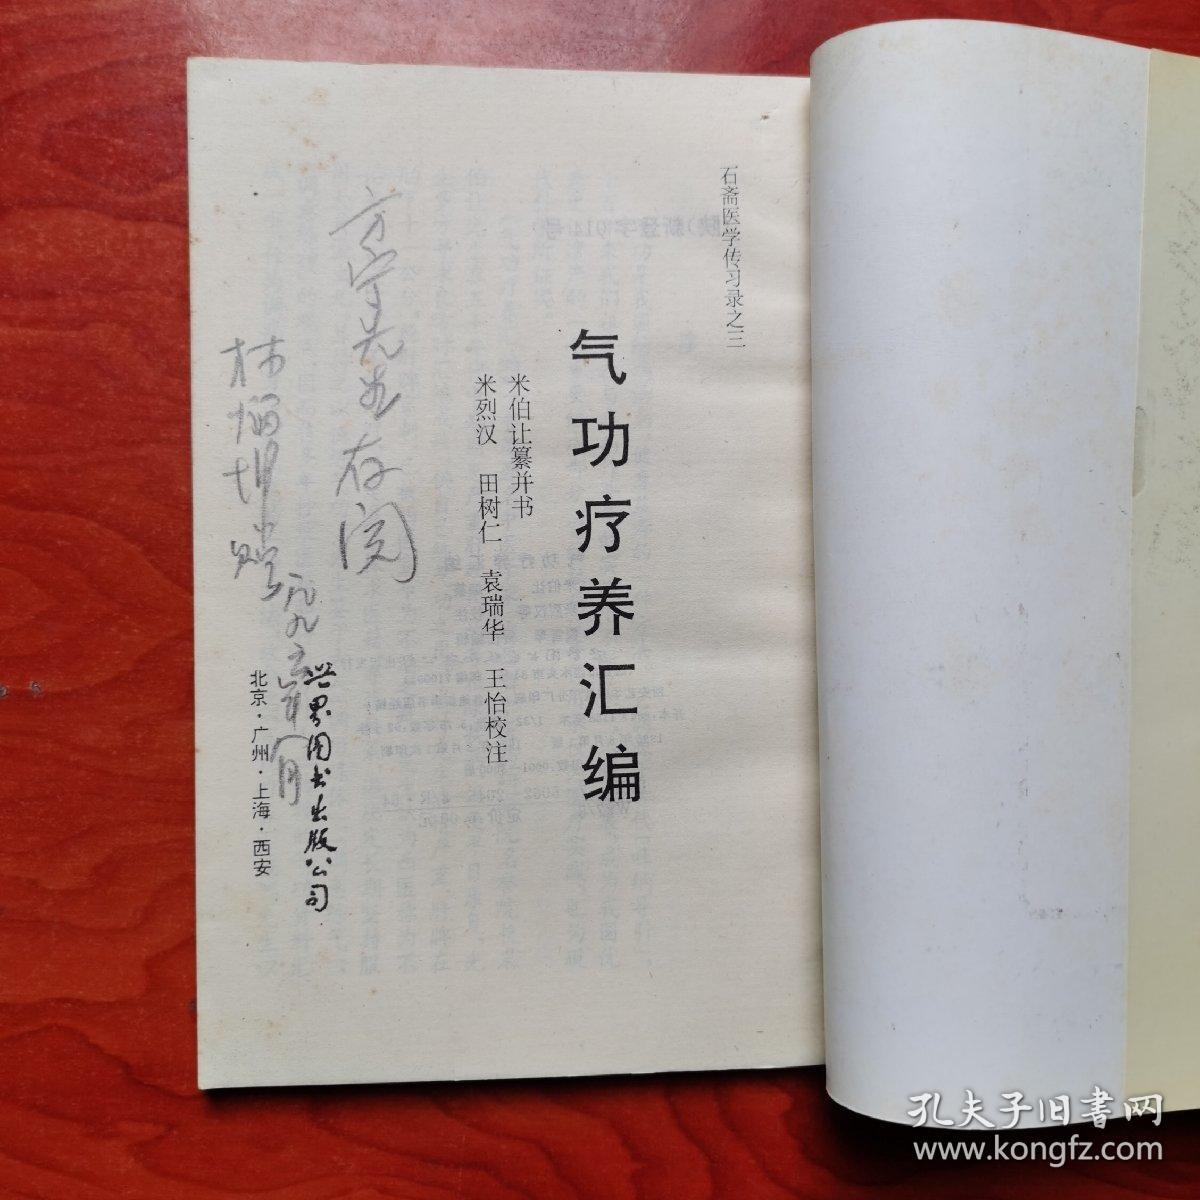 石斋医学传习录之三
气功疗养汇编
米伯让纂并书
米烈汉 田树仁 袁瑞华 王怡校注
世界图书出版公司
北京·广州·上海·西安
先生存阅
孔夫子旧书网
www.kongfz.com